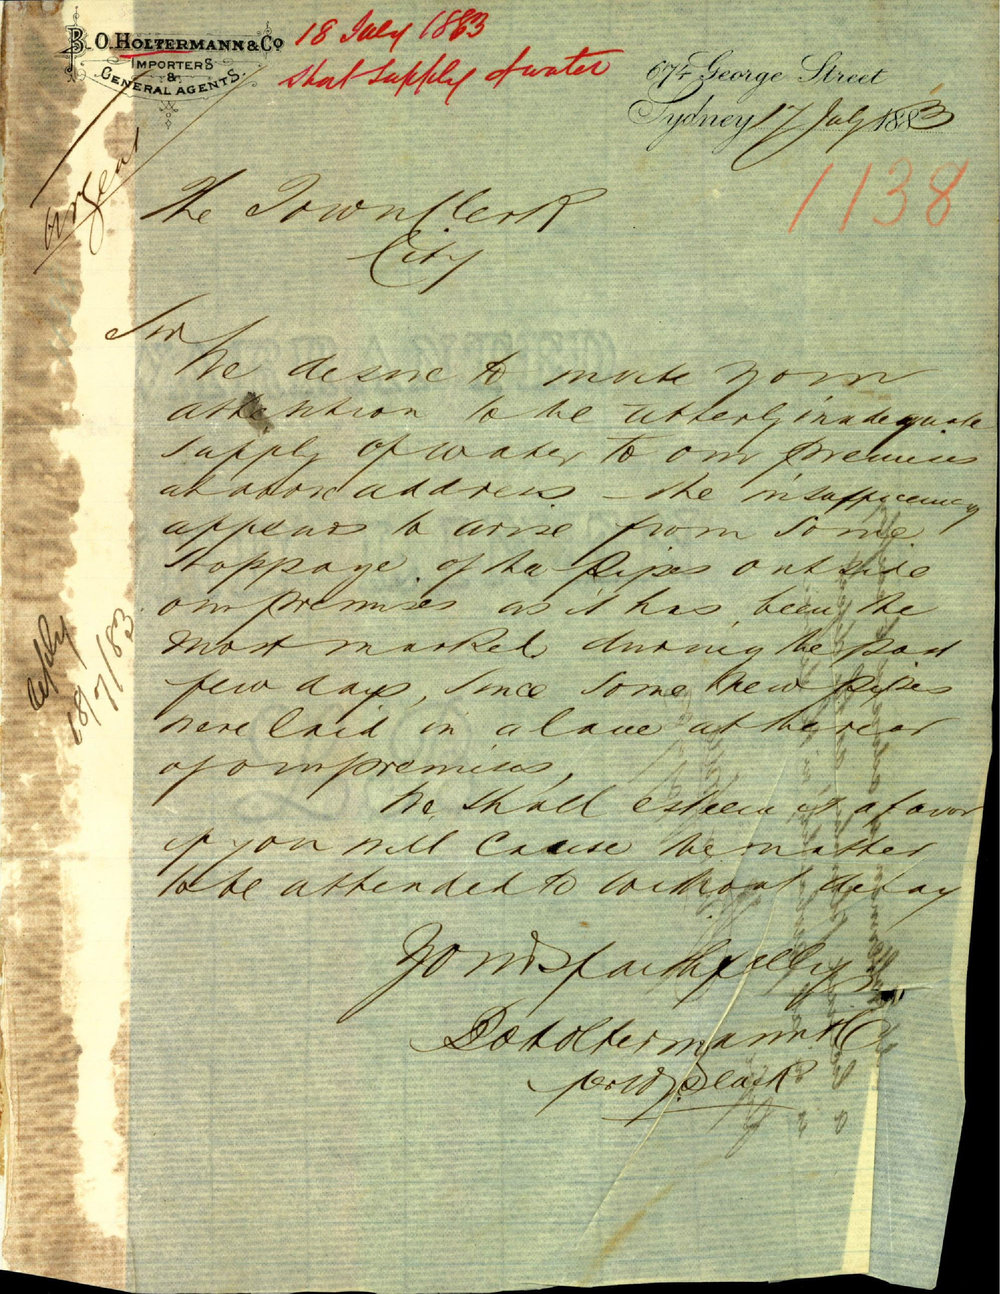 B. O. HOLTERMANN & Co
IMPORTERS
&
GENERAL AGENTS.
18 July 1883
Short supply of water
674 George Street
Sydney 17 July 1883
Urgent
1138
The Town Clerk
City
Sir
We desire to invite your
attention to the utterly inadequate
supply of water to our premises
at above address – the insufficiency
appears to arise from some
stoppage of the pipes outside
our premises as it has been the
most marked during the past
few days, since some new pipes
were laid in a lane at the rear
of our premises,
We shall esteem it a favor
if you will cause the matter
to be attended to without delay
Yours faithfully
B O Holtermann & Co
per W J Slack
reply
18/7/83